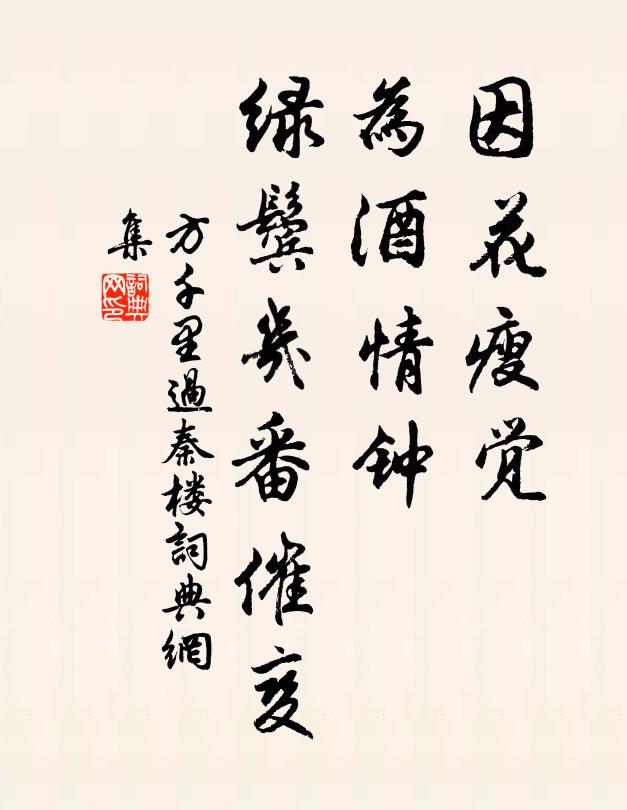 因花瘦觉
为酒情钟
绿鬓几番催变
方千里過秦楼詞典網
集
詞典
网印